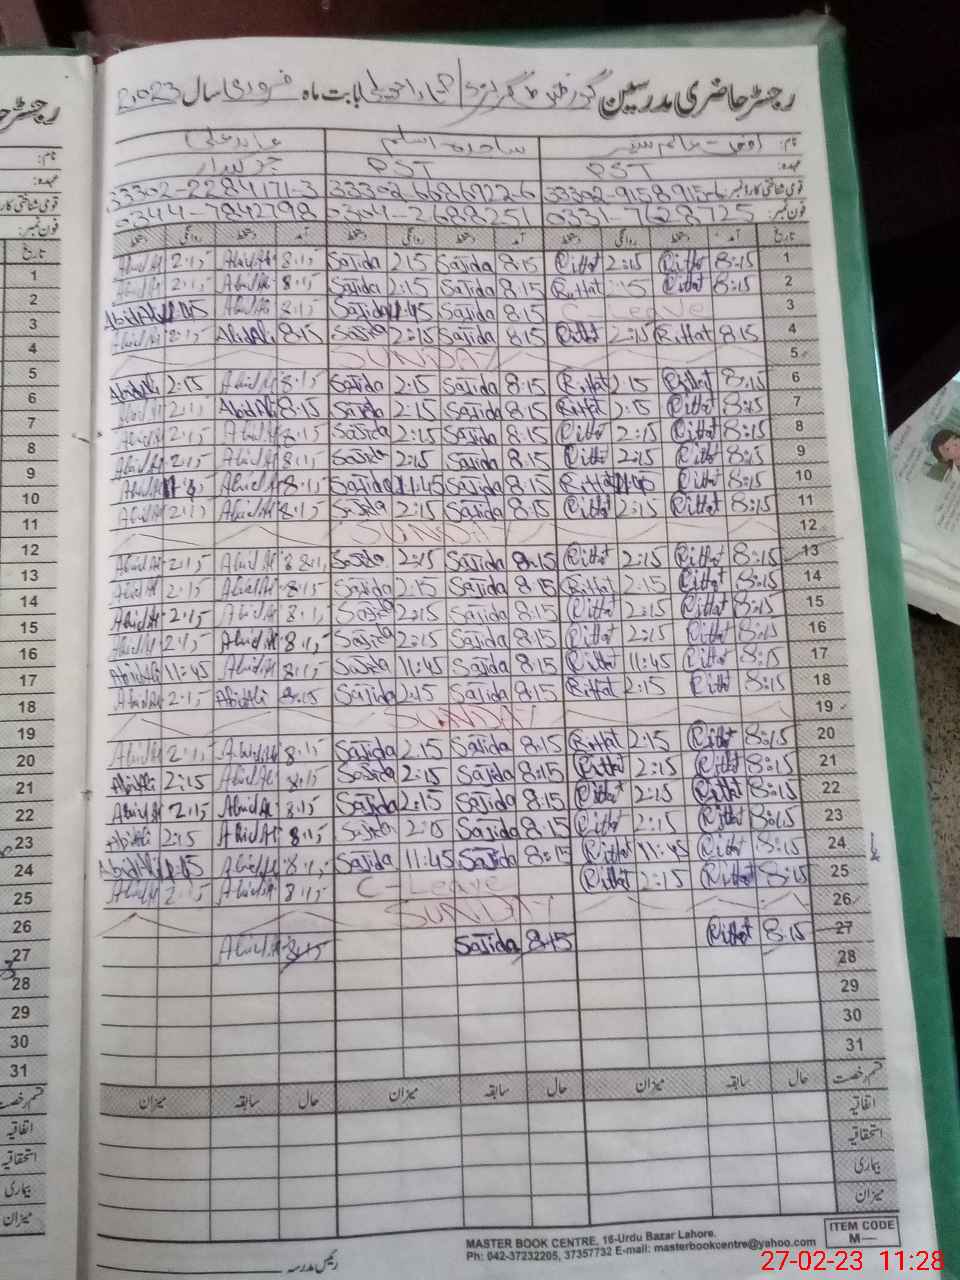 رجسٹر حاضری مدرسین گورنمنٹ گرلز بابت ماہ فروری سال 2023
نام: ساجدہ اسلم عابد علی
عہدہ: PST PST چوکیدار
قومی شناختی کارڈ نمبر 33302-9158915-6 33302-6686922-6 33302-2284171-3
فون نمبر: 0331-7628725 0304-2688251 0344-7842798
تاریخ آمد دستخط روانگی دستخط آمد دستخط روانگی دستخط آمد دستخط روانگی دستخط
1 8:15 Riffat 2:15 Riffat 8:15 Sajida 2:15 Sajida 8:15 Abid Ali 2:15 Abid Ali
2 8:15 Riffat 2:15 Riffat 8:15 Sajida 2:15 Sajida 8:15 Abid Ali 2:15 Abid Ali
3 C-Leave 8:15 Sajida 11:45 Sajida 8:15 Abid Ali 11:45 Abid Ali
4 8:15 Riffat 2:15 Riffat 8:15 Sajida 2:15 Sajida 8:15 Abid Ali 2:15 Abid Ali
5 SUNDAY
6 8:15 Riffat 2:15 Riffat 8:15 Sajida 2:15 Sajida 8:15 Abid Ali 2:15 Abid Ali
7 8:15 Riffat 2:15 Riffat 8:15 Sajida 2:15 Sajida 8:15 Abid Ali 2:15 Abid Ali
8 8:15 Riffat 2:15 Riffat 8:15 Sajida 2:15 Sajida 8:15 Abid Ali 2:15 Abid Ali
9 8:15 Riffat 2:15 Riffat 8:15 Sajida 2:15 Sajida 8:15 Abid Ali 2:15 Abid Ali
10 8:15 Riffat Riffat 8:15 Sajida 11:45 Sajida 8:15 Abid Ali Abid Ali
11 8:15 Riffat 2:15 Riffat 8:15 Sajida 2:15 Sajida 8:15 Abid Ali 2:15 Abid Ali
12 SUNDAY
13 8:15 Riffat 2:15 Riffat 8:15 Sajida 2:15 Sajida 8:15 Abid Ali 2:15 Abid Ali
14 8:15 Riffat 2:15 Riffat 8:15 Sajida 2:15 Sajida 8:15 Abid Ali 2:15 Abid Ali
15 8:15 Riffat 2:15 Riffat 8:15 Sajida 2:15 Sajida 8:15 Abid Ali 2:15 Abid Ali
16 8:15 Riffat 2:15 Riffat 8:15 Sajida 2:15 Sajida 8:15 Abid Ali 2:15 Abid Ali
17 8:15 Riffat 11:45 Riffat 8:15 Sajida 11:45 Sajida 8:15 Abid Ali 11:45 Abid Ali
18 8:15 Riffat 2:15 Riffat 8:15 Sajida 2:15 Sajida 8:15 Abid Ali 2:15 Abid Ali
19 SUNDAY
20 8:15 Riffat 2:15 Riffat 8:15 Sajida 2:15 Sajida 8:15 Abid Ali 2:15 Abid Ali
21 8:15 Riffat 2:15 Riffat 8:15 Sajida 2:15 Sajida 8:15 Abid Ali 2:15 Abid Ali
22 8:15 Riffat 2:15 Riffat 8:15 Sajida 2:15 Sajida 8:15 Abid Ali 2:15 Abid Ali
23 8:15 Riffat 2:15 Riffat 8:15 Sajida 2:15 Sajida 8:15 Abid Ali 2:15 Abid Ali
24 8:15 Riffat 11:45 Riffat 8:15 Sajida 11:45 Sajida 8:15 Abid Ali 11:45 Abid Ali
25 8:15 Riffat 2:15 Riffat C-Leave 8:15 Abid Ali 2:15 Abid Ali
26 SUNDAY
27 8:15 Riffat 8:15 Sajida 8:15 Abid Ali
28
29
30
31
قسم رخصت حال سابقہ میزان حال سابقہ میزان حال سابقہ میزان
اتفاقیہ
استحقاقیہ
بیماری
میزان
رئیس مدرسہ
MASTER BOOK CENTRE, 16-Urdu Bazar Lahore.
Ph: 042-37232205, 37357732 E-mail: masterbookcentre@yahoo.com
ITEM CODE
M—
رجسٹر
نام:
عہدہ:
قومی شناختی کارڈ
فون نمبر:
تاریخ
1
2
3
4
5
6
7
8
9
10
11
12
13
14
15
16
17
18
19
20
21
22
23
24
25
26
27
28
29
30
31
قسم رخصت
اتفاقیہ
استحقاقیہ
بیماری
میزان
27-02-23 11:28